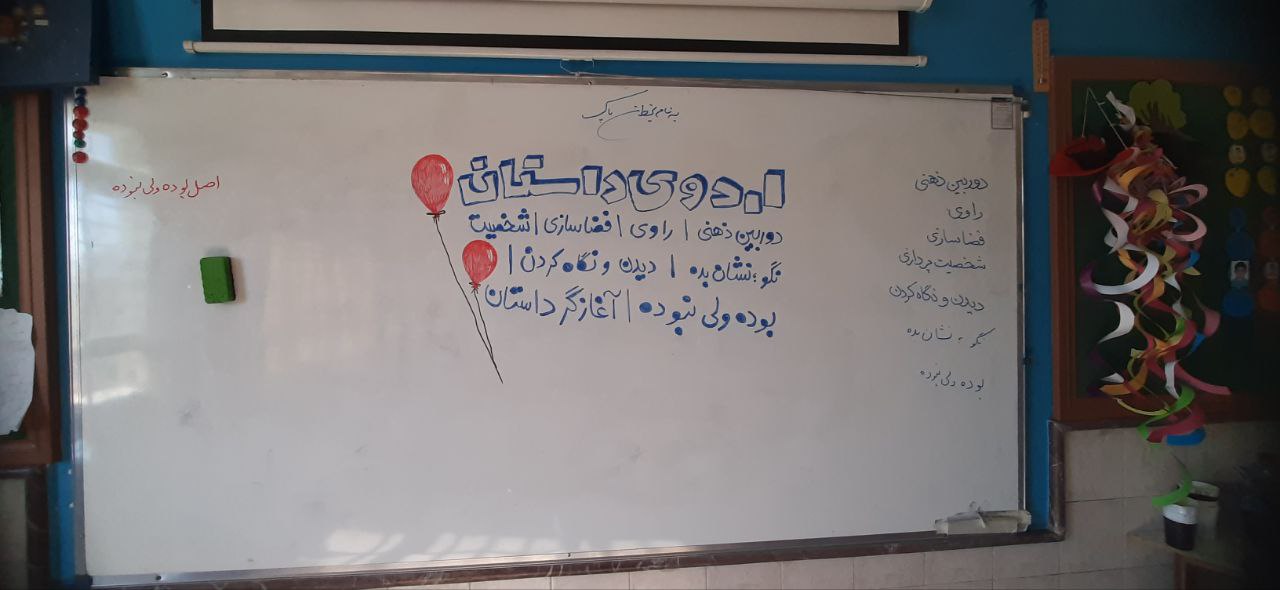 به نام
اردوی داستان
دوربین ذهنی | راوی | فضاسازی | شخصیت
نگو؛ نشان بده | دیدن و نگاه کردن |
بوده ولی نبوده | آغازگر داستان
دوربین ذهنی
راوی
فضاسازی
شخصیت پردازی
دیدن و نگاه کردن
نگو، نشان بده
بوده ولی نبوده
اصل بوده ولی نبوده